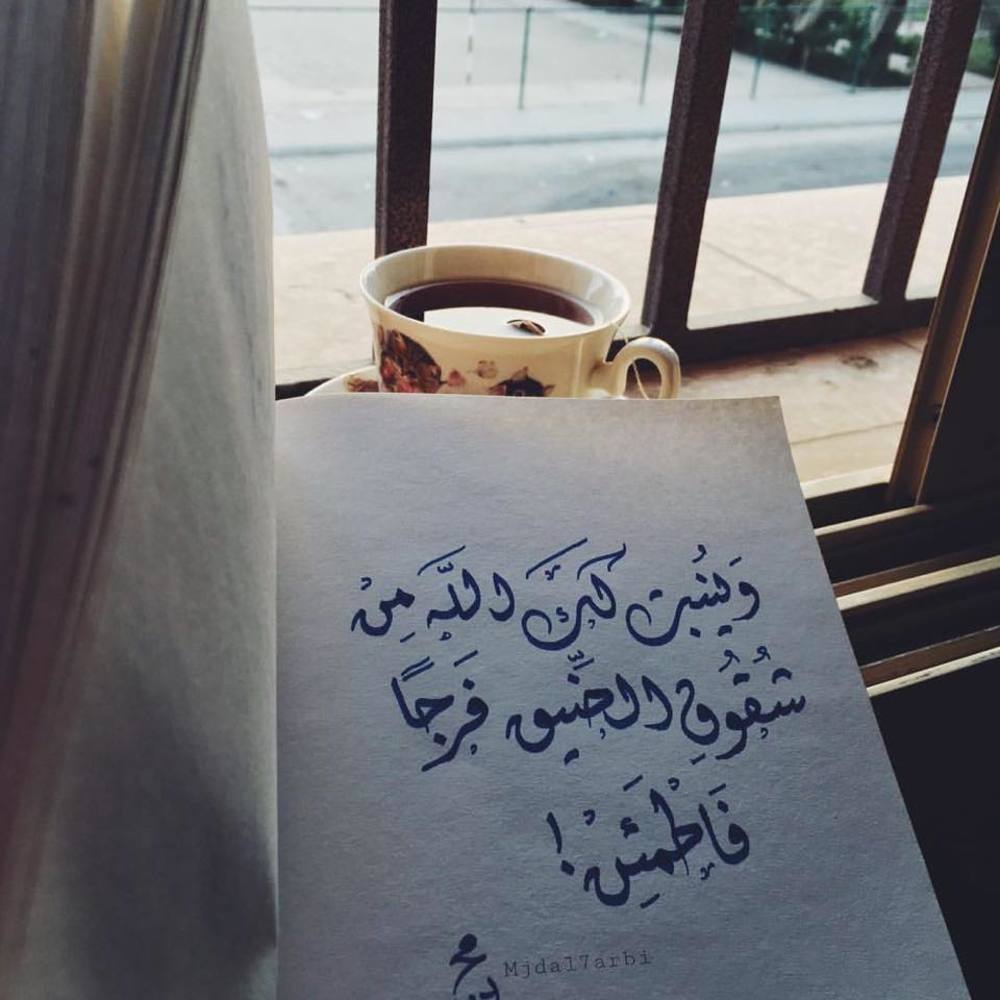 وَينبت لَكَ اللَّه مِنْ
شُقُوقِ الضِّيق فَرَجًا
فَاطْمَئِن !
Mjdal7arbi